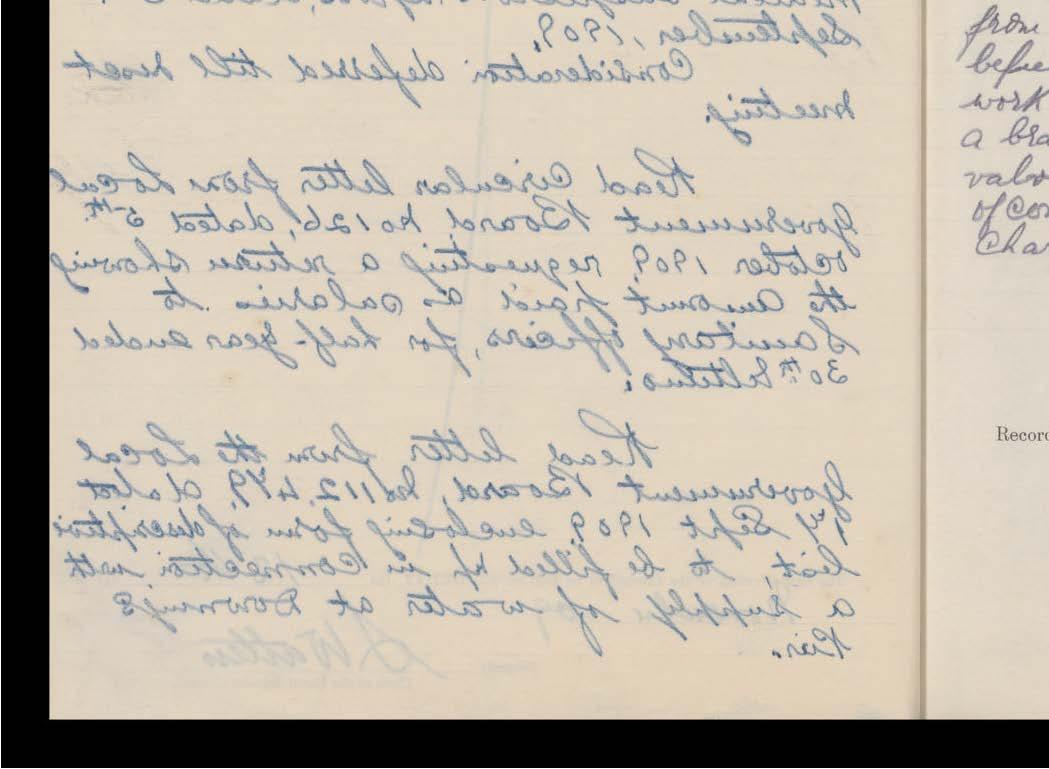 September, 1909.
Consideration deferred till next
meeting.
Read circular letter from Local
Government Board, No 126, dated 5th
October 1909, requesting a return showing
the amount paid as salaries to
Sanitary Officers, for half-year ended
30th Ultimo.
Read letter from the Local
Government Board, No 112,479, dated
Sept 1909 enclosing form of descriptive
list, to be filled up in connection with
a supply of water at Downing's
Pier.
from
work
a bra
of con
Cha
Record